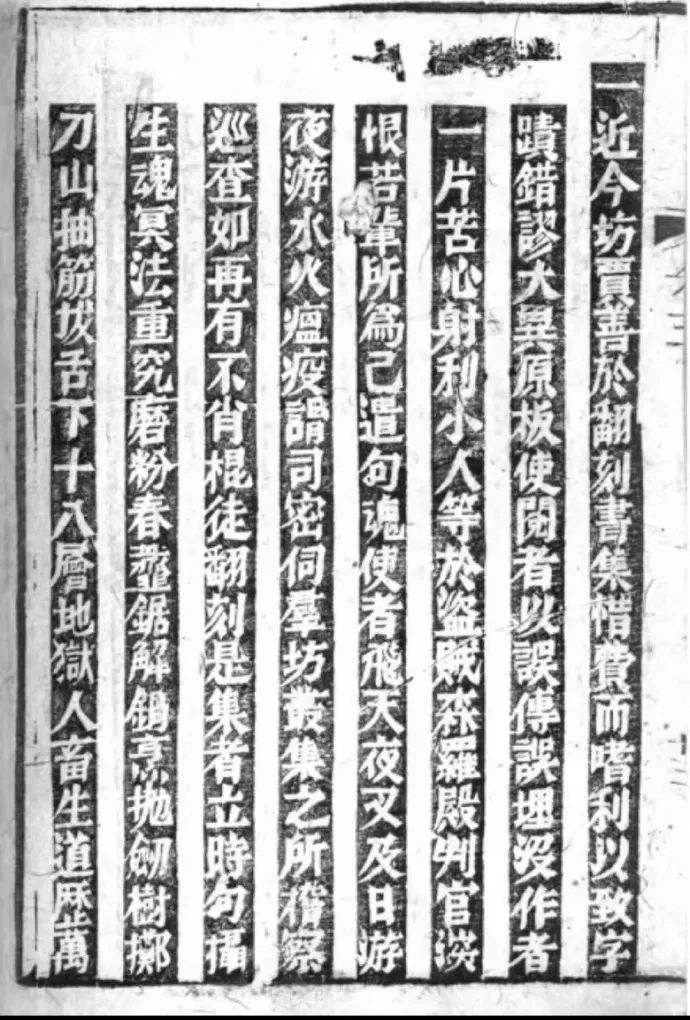 一近今坊賈善於翻刻書集惜費而嗜利以致字
蹟錯謬大異原板使閱者以誤傳誤埋沒作者
一片苦心射利小人等於盜賊森羅殿判官深
恨若輩所為己遣句魂使者飛天夜叉及日游
夜游水火瘟疫諸司密伺羣坊叢集之所稽察
巡查如再有不肖棍徒翻刻是集者立時句攝
生魂冥法重究磨粉舂虀鋸解鍋烹拋劒樹擲
刀山抽筋拔舌下十八層地獄人畜生道歷萬